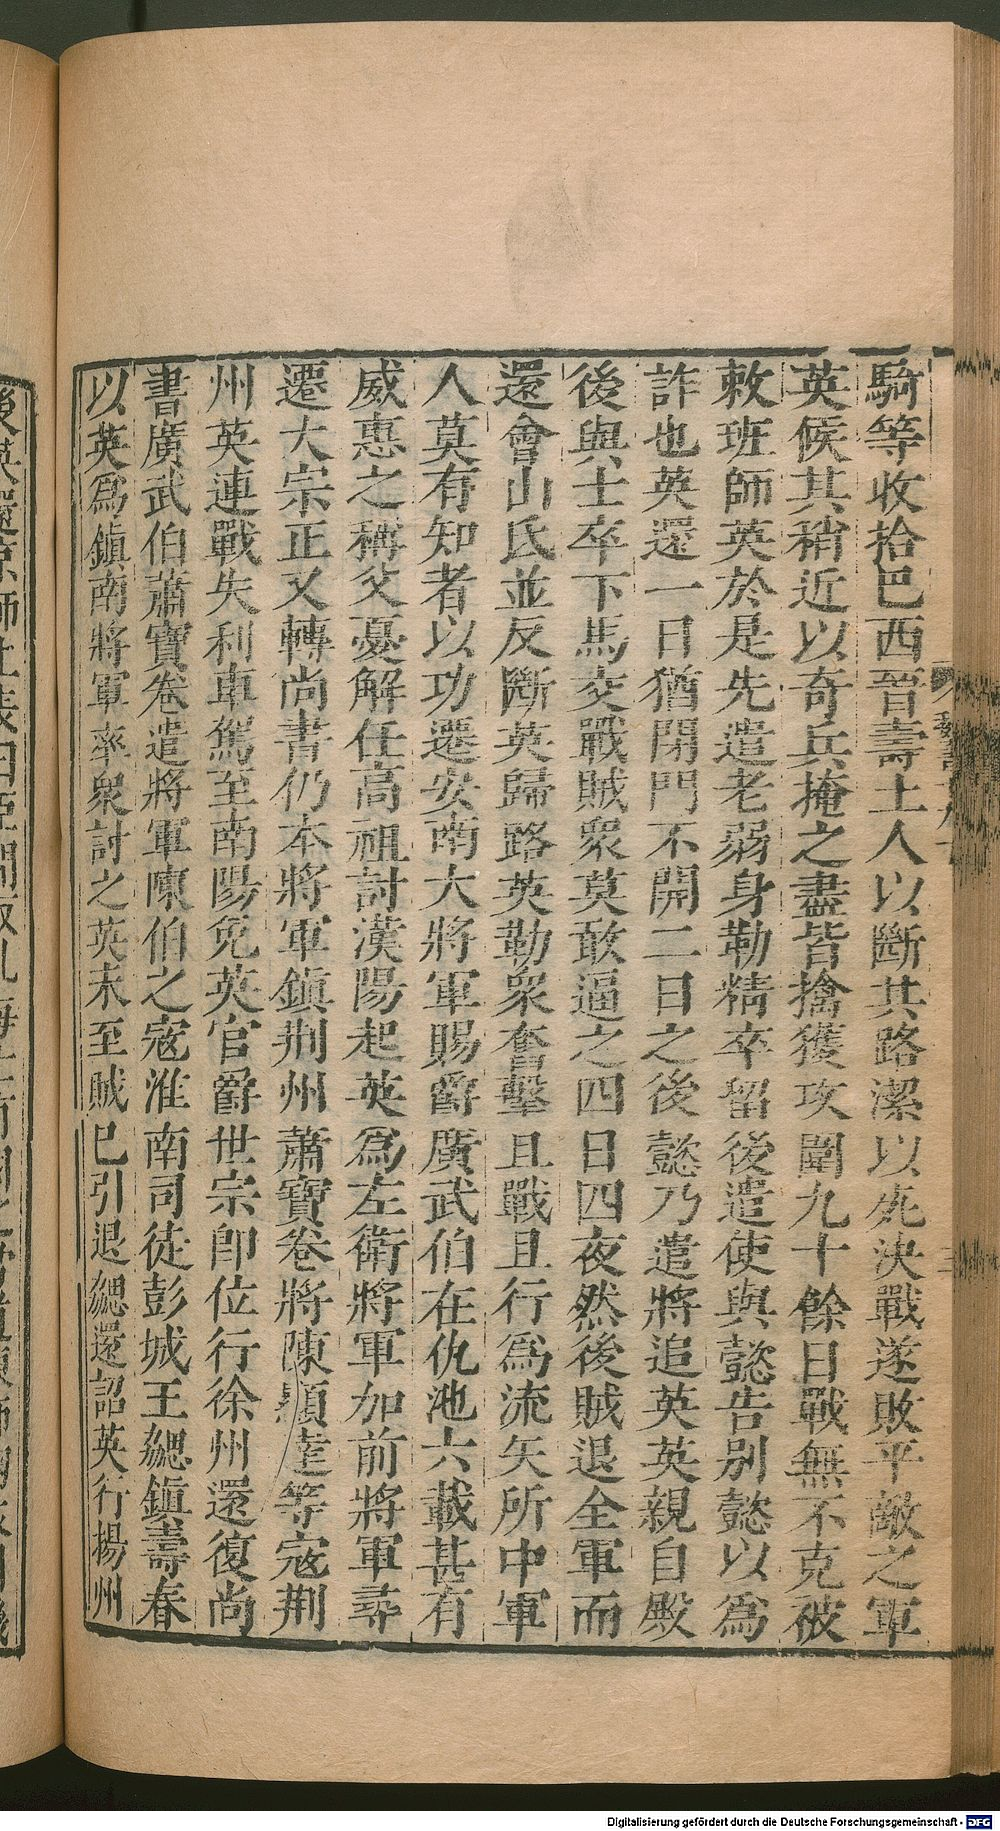 騎等收拾巴西晉壽土人以斷其路潔以死決戰遂敗平敵之軍
英候其稍近以奇兵掩之盡皆擒獲攻圍九十餘日戰無不克被
敕班師英於是先遣老弱身勒精卒留後遣使與懿告別懿以爲
詐也英還一日猶閉門不開二日之後懿乃遣將追英英親自殿
後與士卒下馬交戰賊衆莫敢逼之四日四夜然後賊退全軍而
還會山氐並反斷英歸路英勒衆奮擊且戰且行爲流矢所中軍
人莫有知者以功遷安南大將軍賜爵廣武伯在仇池六載甚有
威惠之稱父憂解任高祖討漢陽起英爲左衛將軍加前將軍尋
遷大宗正又轉尚書仍本將軍鎮荆州蕭寶卷將陳顯達等寇荆
州英連戰失利車駕至南陽免英官爵世宗即位行徐州還復尚
書廣武伯蕭寶卷遣將軍陳伯之寇淮南司徒彭城王勰鎮壽春
以英爲鎮南將軍率衆討之英未至賊已引退勰還詔英行揚州
後英還京師上表曰
Digitalisierung gefördert durch die Deutsche Forschungsgemeinschaft - DFG